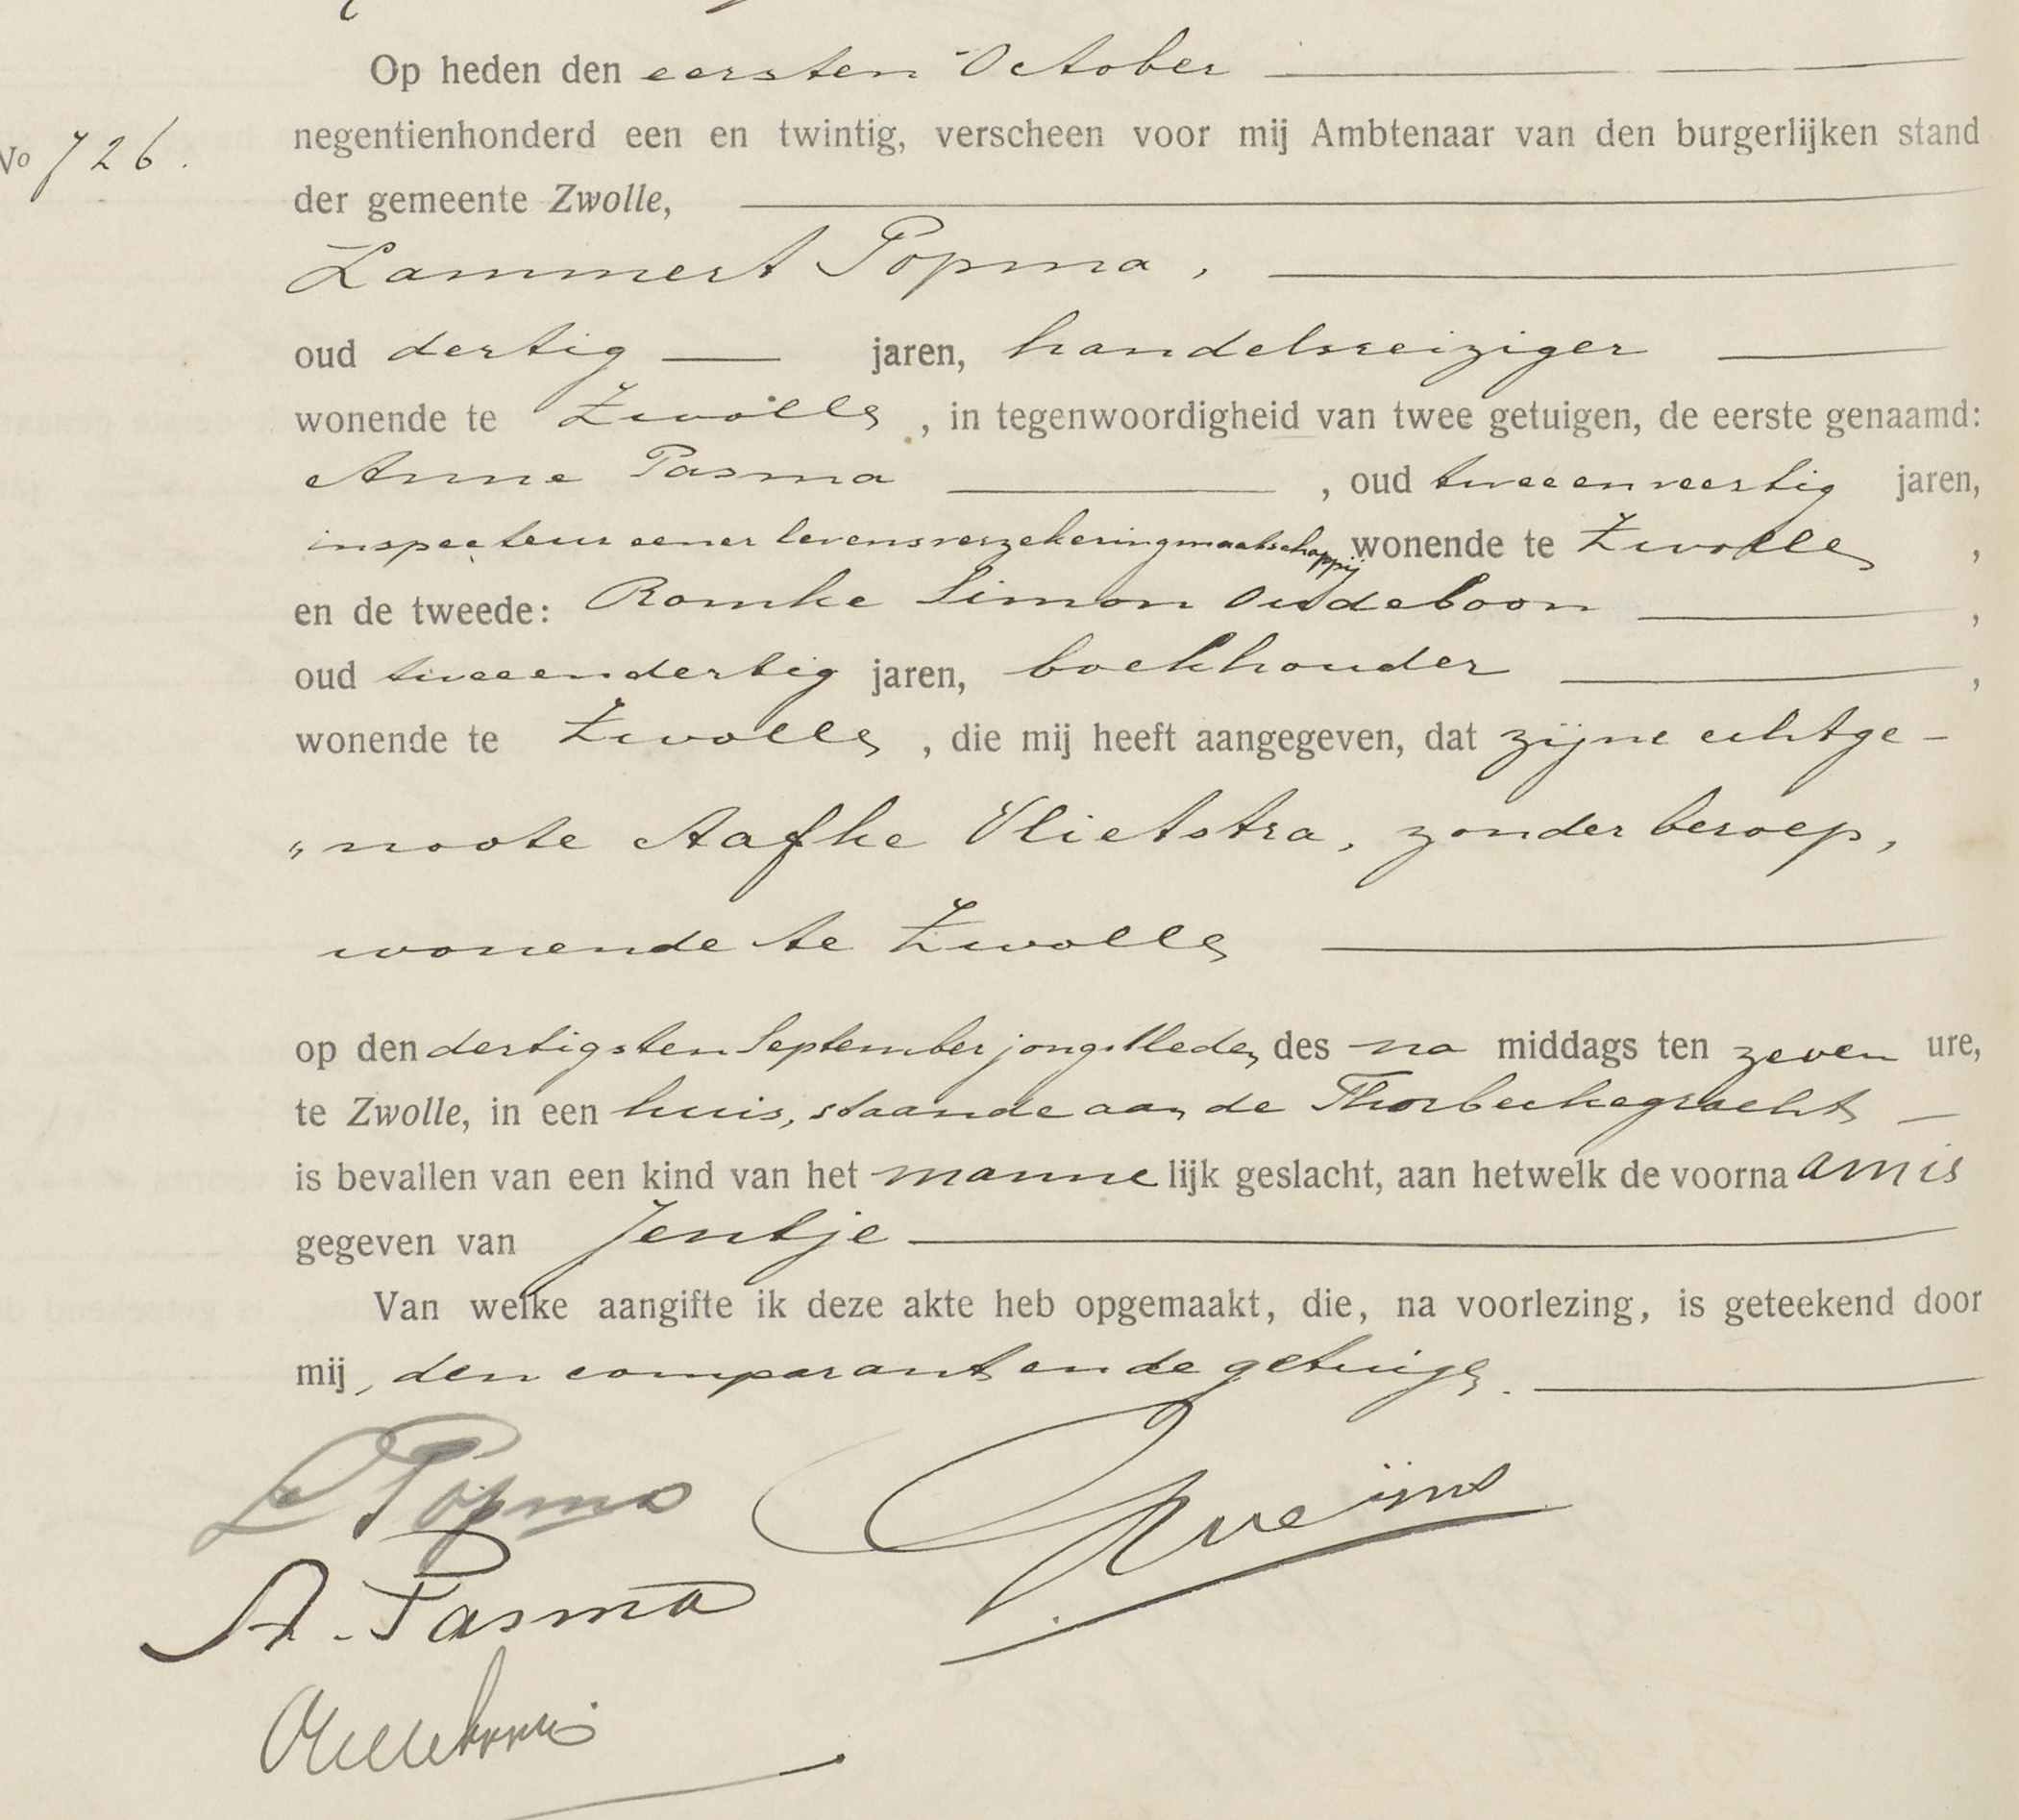 Op heden den eersten October
No 726. negentienhonderd een en twintig, verscheen voor mij Ambtenaar van den burgerlijken stand
der gemeente Zwolle,
Lammert Popma,
oud dertig jaren, handelsreiziger
wonende te Zwolle, in tegenwoordigheid van twee getuigen, de eerste genaamd:
Anne Pasma, oud tweeenveertig jaren,
inspecteur eener levensverzekeringmaatschappij wonende te Zwolle,
en de tweede: Romke Simon Oudeboon,
oud tweeendertig jaren, boekhouder,
wonende te Zwolle, die mij heeft aangegeven, dat zijne echtge-
„noote Aafke Vlietstra, zonder beroep,
wonende te Zwolle
op den dertigsten September jongstleden des na middags ten zeven ure,
te Zwolle, in een huis, staande aan de Thorbeckegracht
is bevallen van een kind van het mannelijk geslacht, aan hetwelk de voornaam is
gegeven van Jentje
Van welke aangifte ik deze akte heb opgemaakt, die, na voorlezing, is geteekend door
mij, den comparant en de getuigen.
L Popma
A. Pasma